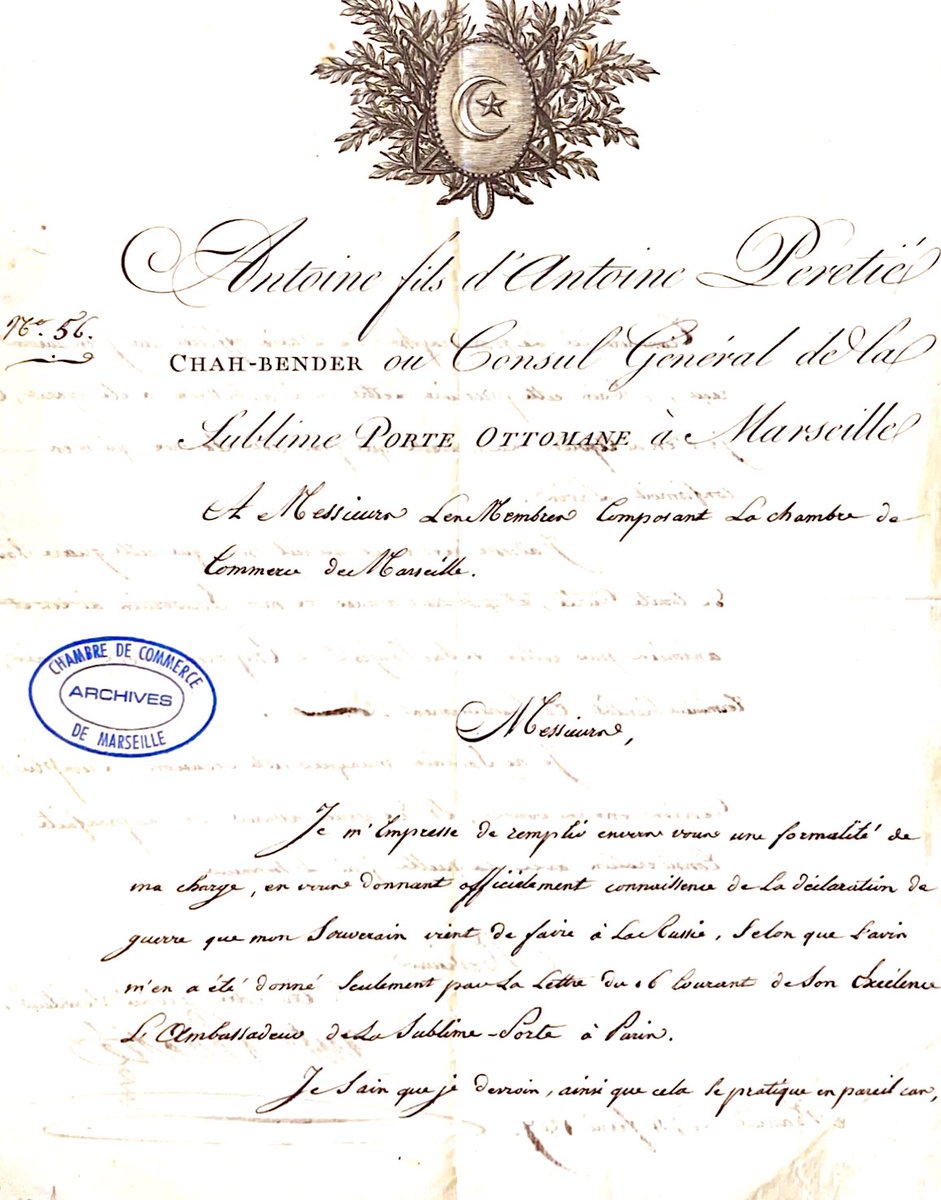 Antoine fils d'Antoine Peretié
Nº. 56.
CHAH-BENDER ou Consul Général de la
Sublime PORTE OTTOMANE à Marseille
A Messieurs Les Membres Composant La chambre de
Commerce de Marseille.
CHAMBRE DE COMMERCE
ARCHIVES
DE MARSEILLE
Messieurs,
Je m'Empresse de remplir envers vous une formalité de
ma charge, en vous donnant officielement connaissence de La déclaration de
guerre que mon Souverain vient de faire à La Russie, Selon que L'avis
m'en a été donné Seulement par La Lettre du 16 Courant de Son Excélence
L'Ambassadeur de La Sublime-Porte à Paris.
Je Sais que je devrois, ainsi que cela Se pratique en pareil cas,